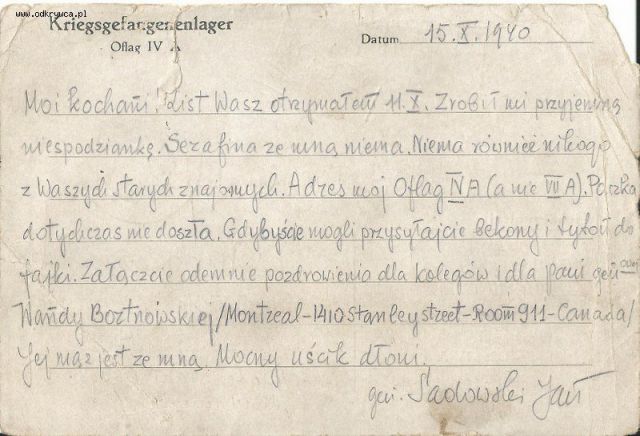 www.odkrywca.pl
Kriegsgefangenenlager
Oflag IV A
Datum 15.X.1940
Moi kochani! List Wasz otrzymałem 11.X. Zrobił mi przyjemną
niespodziankę. Serafina ze mną niema. Niema również nikogo
z Waszych starych znajomych. Adres mój Oflag IV A (a nie VII A). Paczka
dotychczas nie doszła. Gdybyście mogli przysyłajcie bekony i tytoń do
fajki. Załączcie odemnie pozdrowienia dla kolegów i dla pani gen
Wandy Bortnowskiej /Montreal-1410 Stanley street-Room 911-Canada/
Jej mąż jest ze mną. Mocny uścik dłoni.
gen. Sadowski Jan